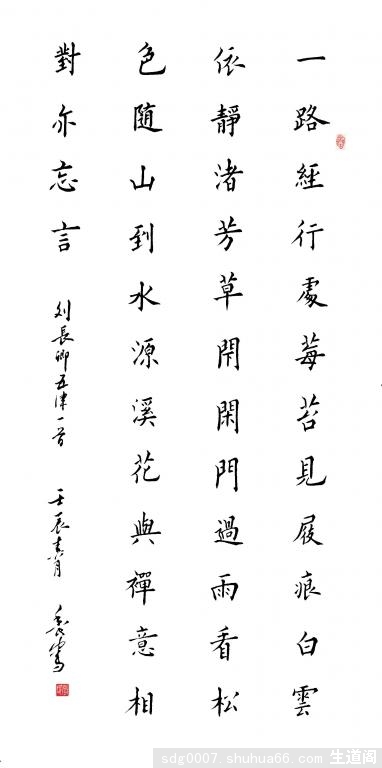 一路經行處莓苔見屐痕白雲
依靜渚芳草閉閑門過雨看松
色随山到水源溪花與禪意相
對亦忘言 刘長卿五律一首 壬辰春月
sdg0007.shuhua66.com 生道阁